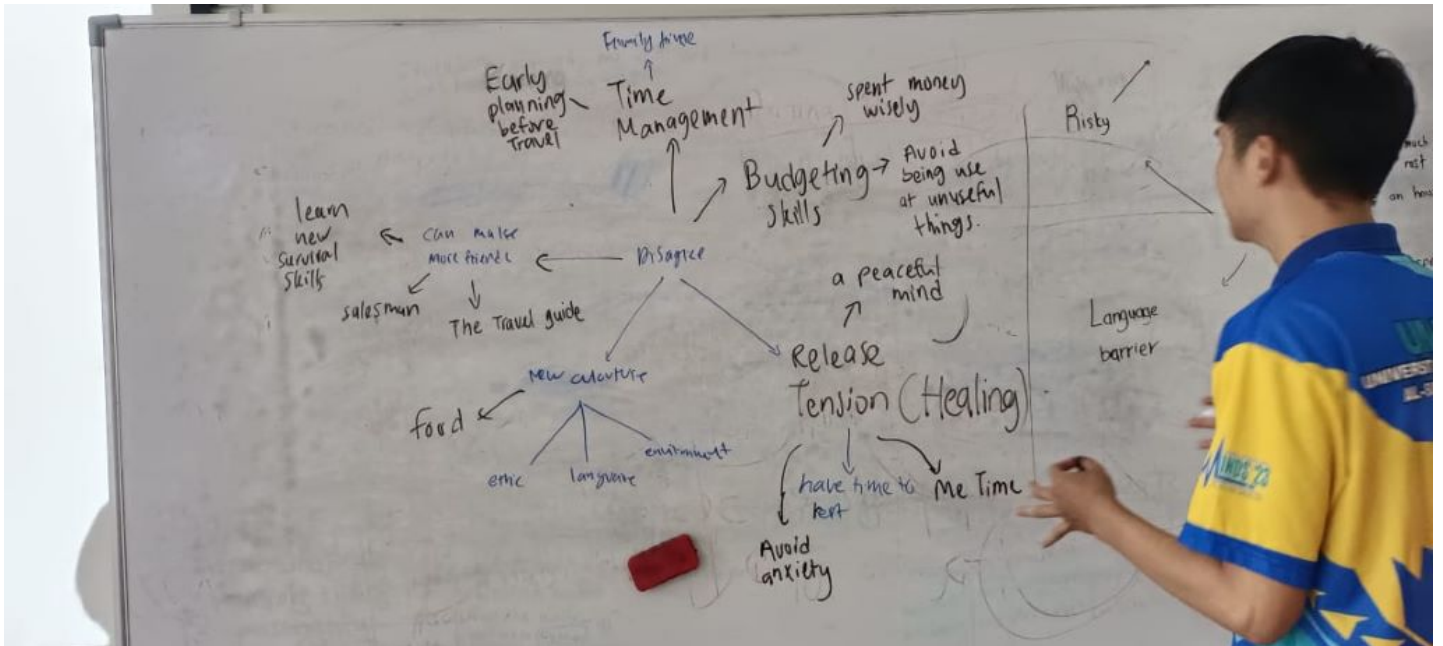 Family time
Early
planning
before
Travel
Time
Management
spent money
wisely
Budgeting
skills
Avoid
being use
at unuseful
things.
learn
new
survival
skills
can make
more friends
salesman
The Travel guide
Disagree
a peaceful
mind
Release
Tension (Healing)
new
food
etnic
language
have time to
rest
Me Time
Avoid
anxiety
Risky
Language
barrier
much
rest
an hou
UNIVERS
AL-S